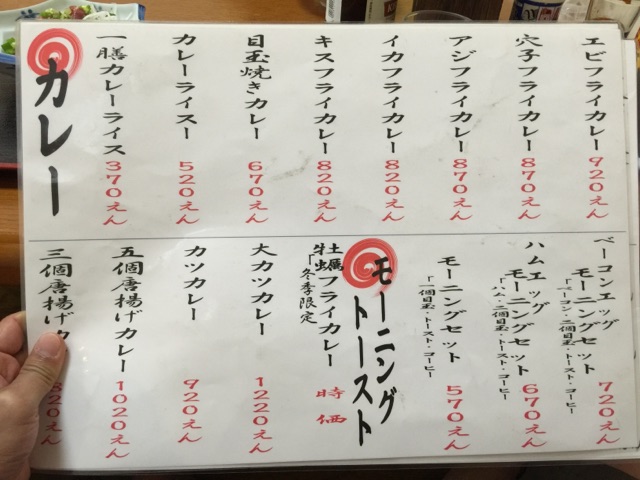 カレー
一膳カレーライス 370えん
カレーライスー 520えん
目玉焼きカレー 670えん
キスフライカレー 820えん
イカフライカレー 820えん
アジフライカレー 870えん
穴子フライカレー 870えん
エビフライカレー 920えん
三個唐揚げカ 820えん
五個唐揚げカレー 1020えん
カツカレー 920えん
大カツカレー 1220えん
牡蠣フライカレー 時価
「冬季限定
モーニング
トースト
モーニングセット 570えん
「一個目玉・トースト・コーヒー
ハムエッグ
モーニングセット 670えん
「ハム・二個目玉・トースト・コーヒー
ベーコンエッグ
モーニングセット 720えん
「ベーコン・二個目玉・トースト・コーヒー